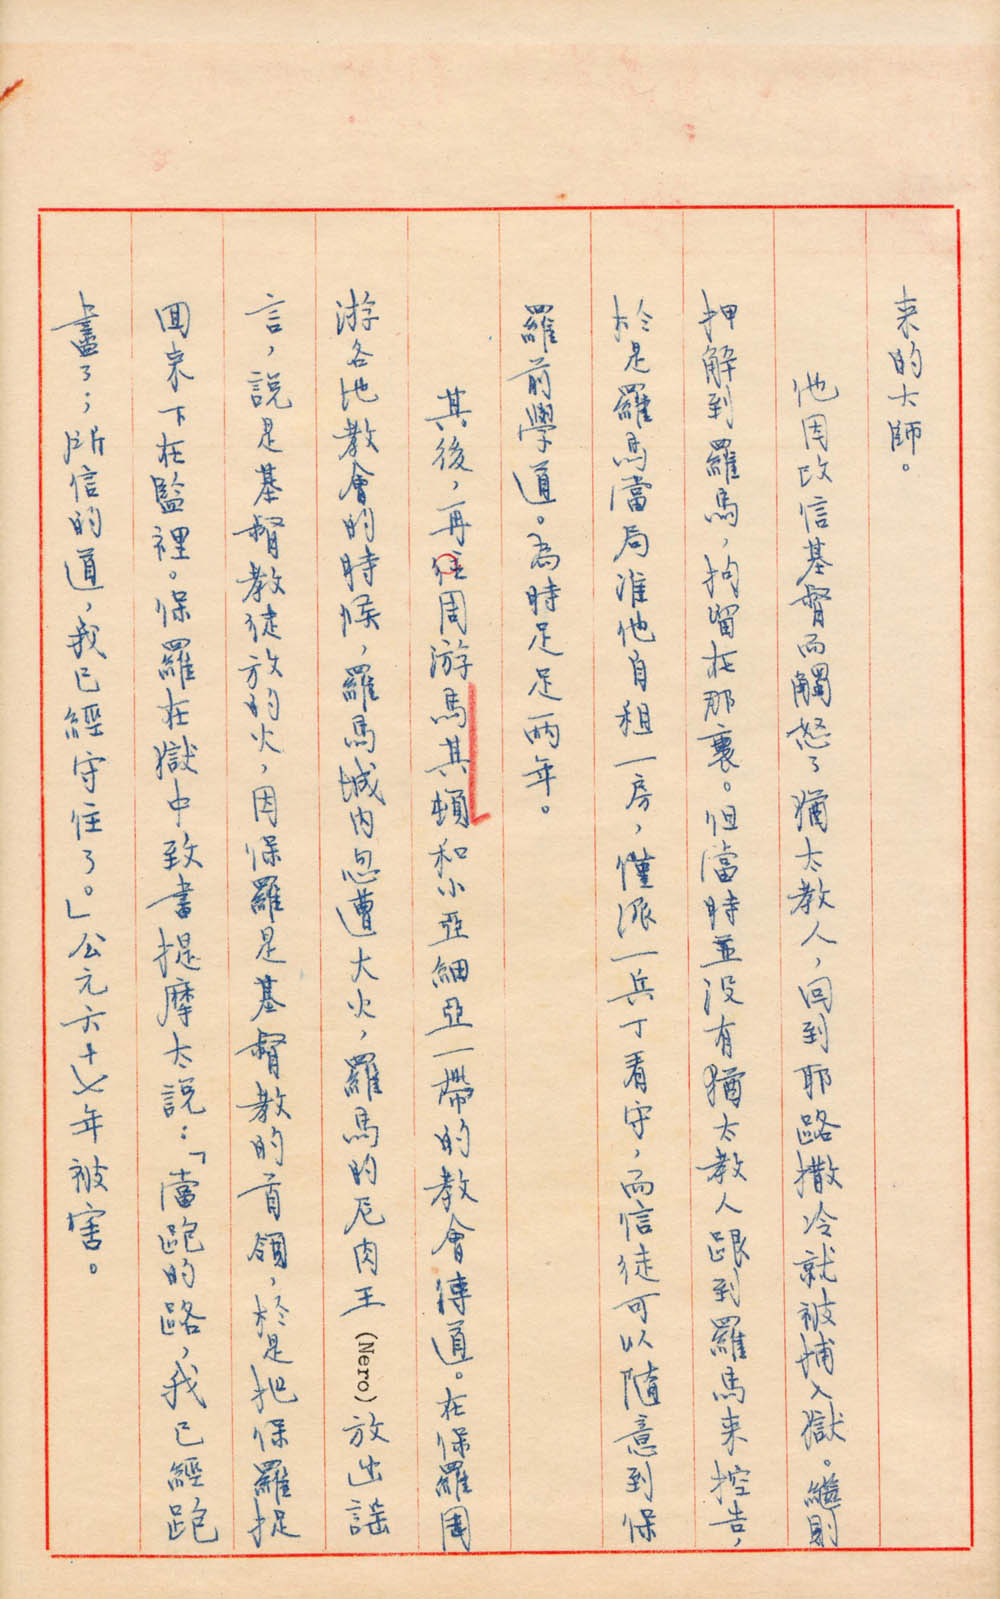 来的大師。
他因改信基督而觸怒了猶太教人，回到耶路撒冷就被捕入獄。繼則
押解到羅馬，拘留在那裏。但當時並没有猶太教人跟到羅馬来控告，
於是羅馬當局准他自租一房，僅派一兵丁看守，而信徒可以隨意到保
羅前學道。為時足足兩年。
其後，再往周游馬其頓和小亞細亞一帶的教會傳道。在保羅周
游各地教會的時候，羅馬城内忽遭大火，羅馬的尼肉王(Nero)放出謡
言，説是基督教徒放的火，因保羅是基督教的首領，於是把保羅捉
回来下在監裡。保羅在獄中致書提摩太説：「當跑的路，我已經跑
盡了；所信的道，我已經守住了。」公元六十七年被害。